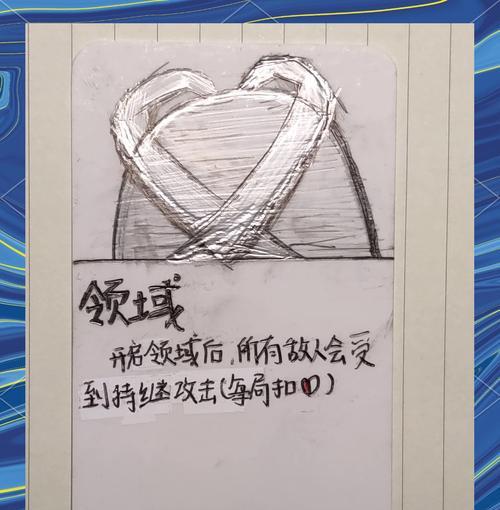 领域
开启领域后,所有敌人会受
到持继攻击(每局扣♥)